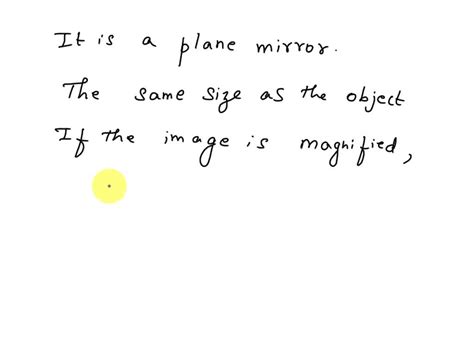 It is a plane mirror.
The same size as the object
If the image is magnified,